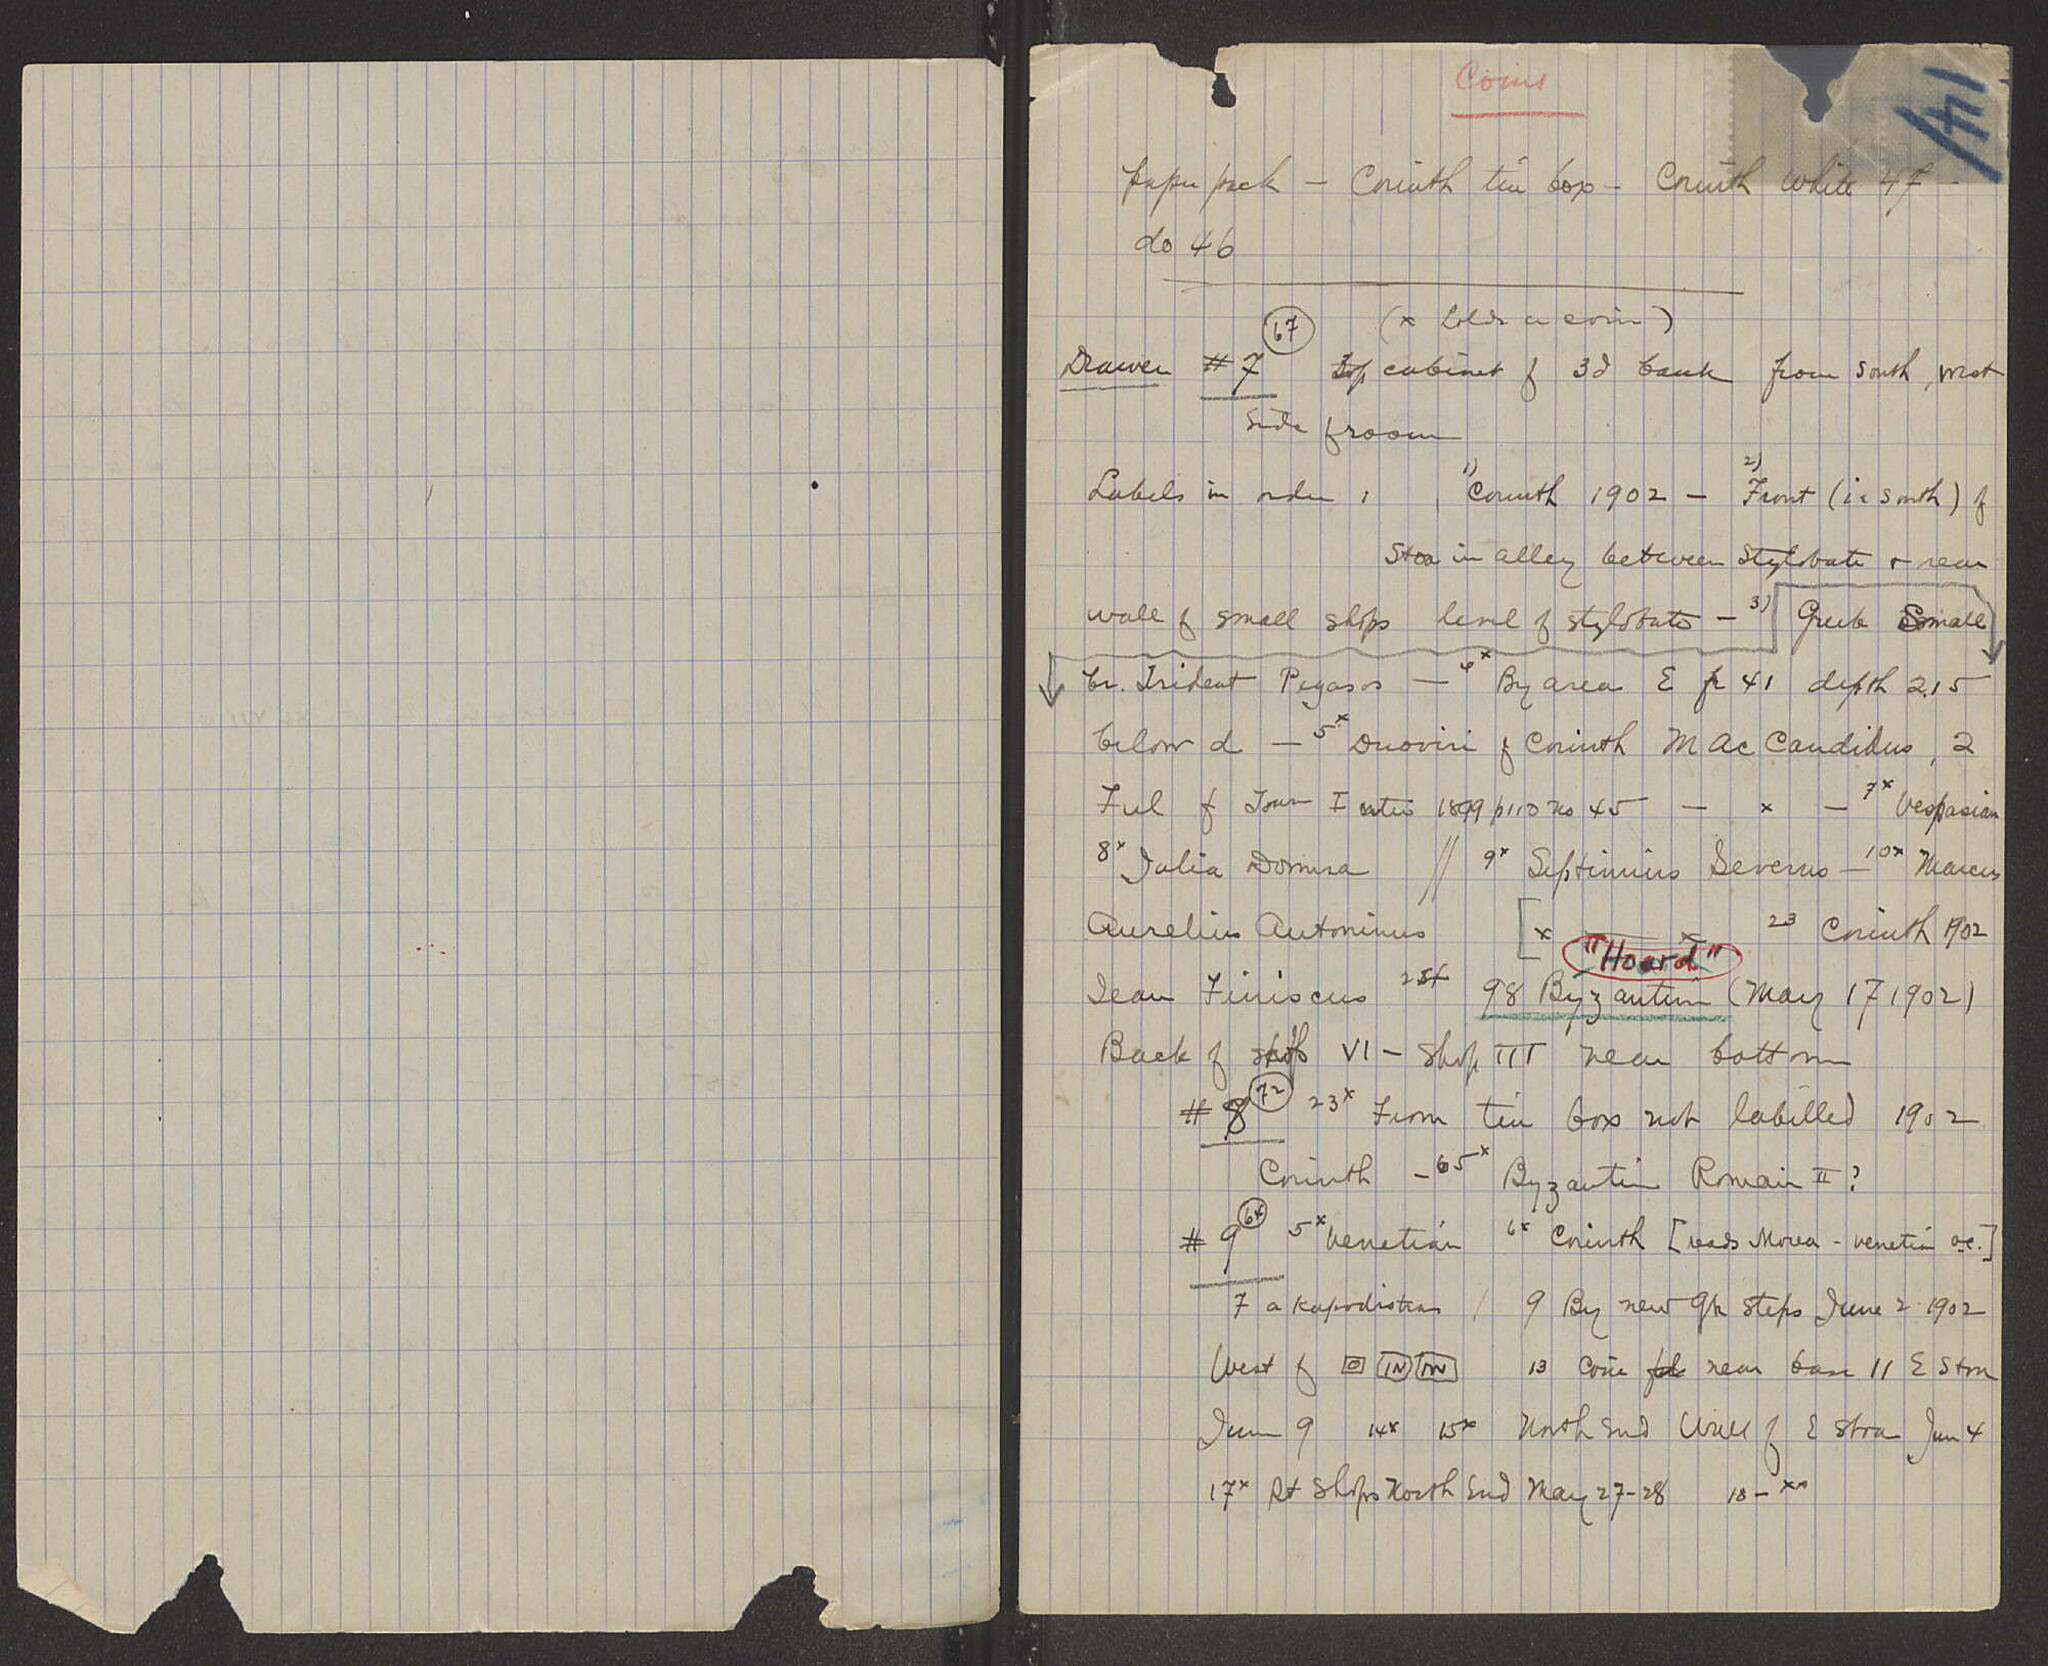 Coins
paper pack - Corinth tin box - Corinth white 47 -
do 46
67 (x holds a coin)
Drawer #7 Top cabinet of 3d bank from south, west
side of room
Labels in order : 1) Corinth 1902 - 2) Front (i e south) of
Stoa in alley between stylobate + rear
wall of small shops level of stylobate - 3) Greek Small
br. Trident Pegasos - 4x By area E 41 depth 2.15
below d - 5x Duoviri of Corinth M Ac Candidus, 2
Ful 1899 p110 no 45 - x - 7x Vespasian
8x Julia Domna // 9x Septimius Severus - 10x Marcus
Aurelius Antoninus [x x 23 Corinth 1902
"Hoard"
98 Byzantine (May 17 1902)
Back of shop VI - Shop III near bottom
#8 72 23x From tin box not labelled 1902
Corinth - 65x Byzantine Romain II ?
#9 64 5x Venetian 6x Corinth [reads Morea - venetian oc.]
7 a Kapodistrias / 9 By new Gk steps June 2 1902
West of IN 13 Coin near base 11 E Stoa
June 9 14x 15x North End Wall of E Stoa Jun 4
17x Rt Shops North End May 27-28 18 - xx